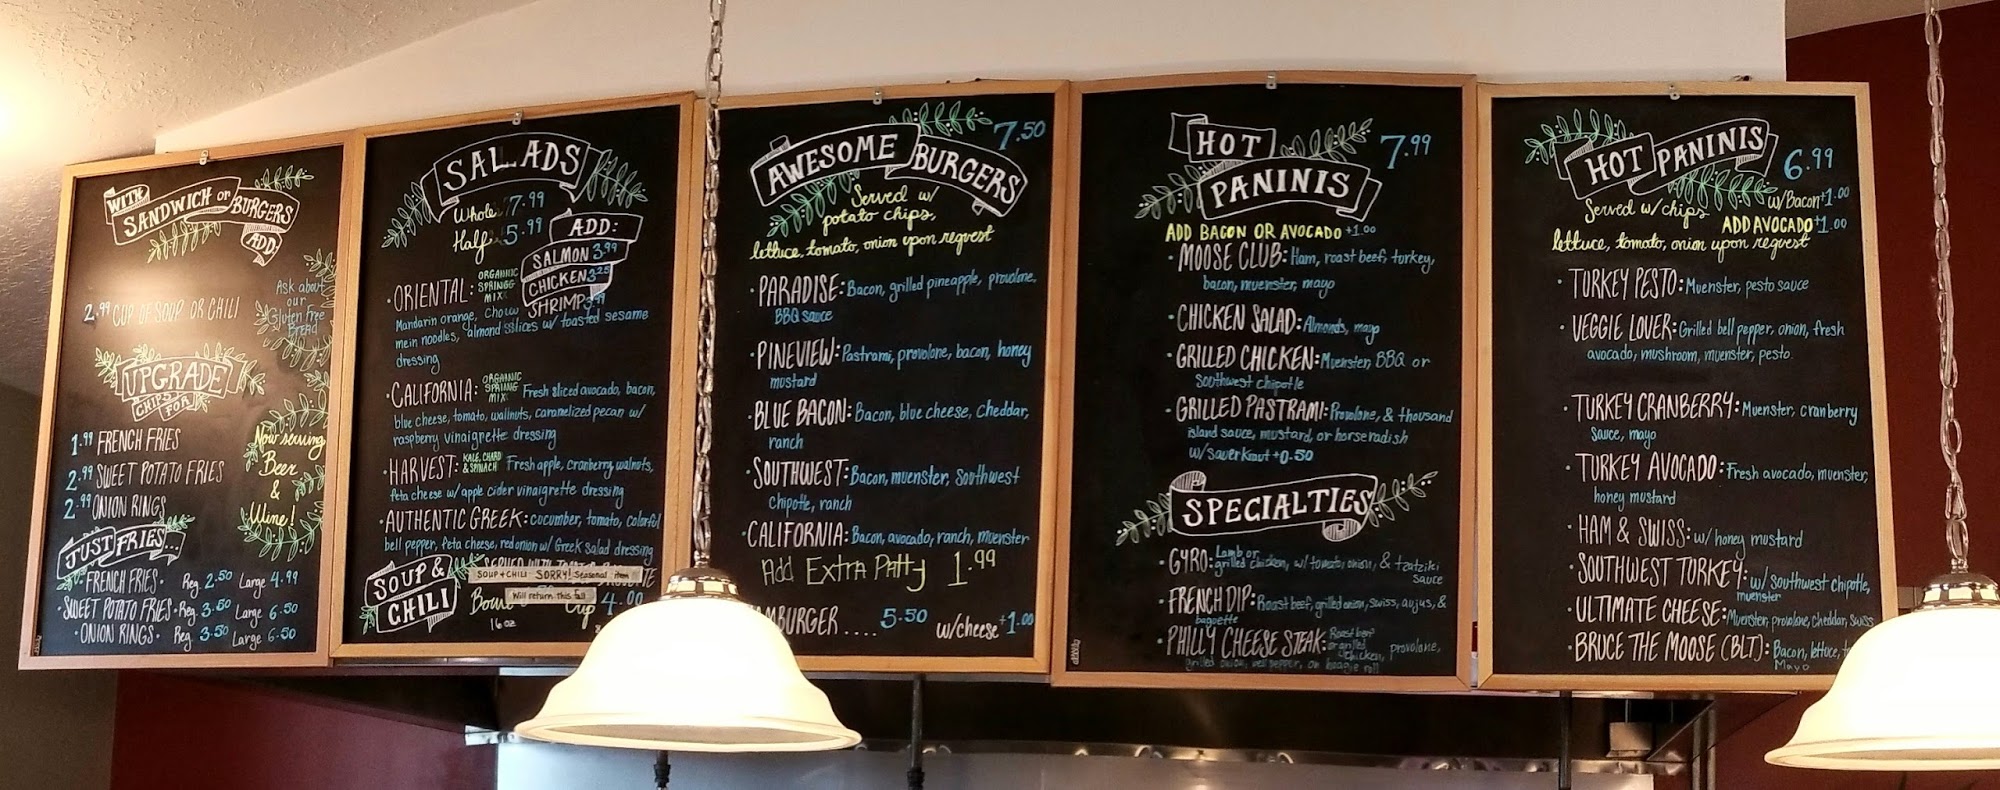 WITH
SANDWICH or BURGERS
ADD
2.99 CUP OF SOUP OR CHILI
Ask about
our
Gluten Free
Bread
UPGRADE
CHIPS FOR
1.99 FRENCH FRIES
2.99 SWEET POTATO FRIES
2.99 ONION RINGS
Now serving
Beer
&
Wine!
JUST FRIES...
FRENCH FRIES. Reg. 2.50 Large 4.99
SWEET POTATO FRIES. Reg. 3.50 Large 6.50
ONION RINGS. Reg. 3.50 Large 6.50
SALADS
Whole 7.99
Half 5.99
ADD:
SALMON 3.99
CHICKEN 3.25
SHRIMP 3.99
• ORIENTAL: ORGANIC SPRING MIX
Mandarin orange, chow
mein noodles, almond slices w/ toasted sesame
dressing
• CALIFORNIA: ORGANIC SPRING MIX Fresh sliced avocado, bacon,
blue cheese, tomato, walnuts, caramelized pecan w/
raspberry vinaigrette dressing
• HARVEST: KALE, CHARD & SPINACH Fresh apple, cranberry, walnuts,
feta cheese w/ apple cider vinaigrette dressing
• AUTHENTIC GREEK: cucumber, tomato, colorful
bell pepper, feta cheese, red onion w/ Greek salad dressing
SOUP & CHILI
SOUP & CHILI SORRY! Seasonal item
Will return this fall
Cup 4.00
16 oz
AWESOME BURGERS 7.50
Served w/
potato chips,
lettuce, tomato, onion upon request
• PARADISE: Bacon, grilled pineapple, provolone,
BBQ sauce
• PINEVIEW: Pastrami, provolone, bacon, honey
mustard
• BLUE BACON: Bacon, blue cheese, cheddar,
ranch
• SOUTHWEST: Bacon, muenster, Southwest
chipotle, ranch
• CALIFORNIA: Bacon, avocado, ranch, muenster
Add Extra Patty 1.99
HAMBURGER .... 5.50 w/cheese +1.00
HOT
PANINIS 7.99
ADD BACON OR AVOCADO +1.00
• MOOSE CLUB: Ham, roast beef, turkey,
bacon, muenster, mayo
• CHICKEN SALAD: Almonds, mayo
• GRILLED CHICKEN: Muenster, BBQ or
Southwest chipotle
• GRILLED PASTRAMI: Provolone, & thousand
island sauce, mustard, or horseradish
w/ Sauerkraut +0.50
SPECIALTIES
• GYRO: Lamb or
grilled chicken, w/ tomato, onion, & tzatziki
sauce
• FRENCH DIP: Roast beef, grilled onion, swiss, aujus, &
baguette
• PHILLY CHEESE STEAK: Roast beef or grilled chicken, provolone,
grilled onion, bell pepper, on hoagie roll
HOT PANINIS 6.99
w/Bacon +1.00
Served w/ chips ADD AVOCADO +1.00
lettuce, tomato, onion upon request
• TURKEY PESTO: Muenster, pesto sauce
• VEGGIE LOVER: Grilled bell pepper, onion, fresh
avocado, mushroom, muenster, pesto.
• TURKEY CRANBERRY: Muenster, cranberry
sauce, mayo
• TURKEY AVOCADO: Fresh avocado, muenster,
honey mustard
• HAM & SWISS: w/ honey mustard
• SOUTHWEST TURKEY: w/ Southwest chipotle,
muenster
• ULTIMATE CHEESE: Muenster, provolone, cheddar, swiss
• BRUCE THE MOOSE (BLT): Bacon, lettuce,
Mayo